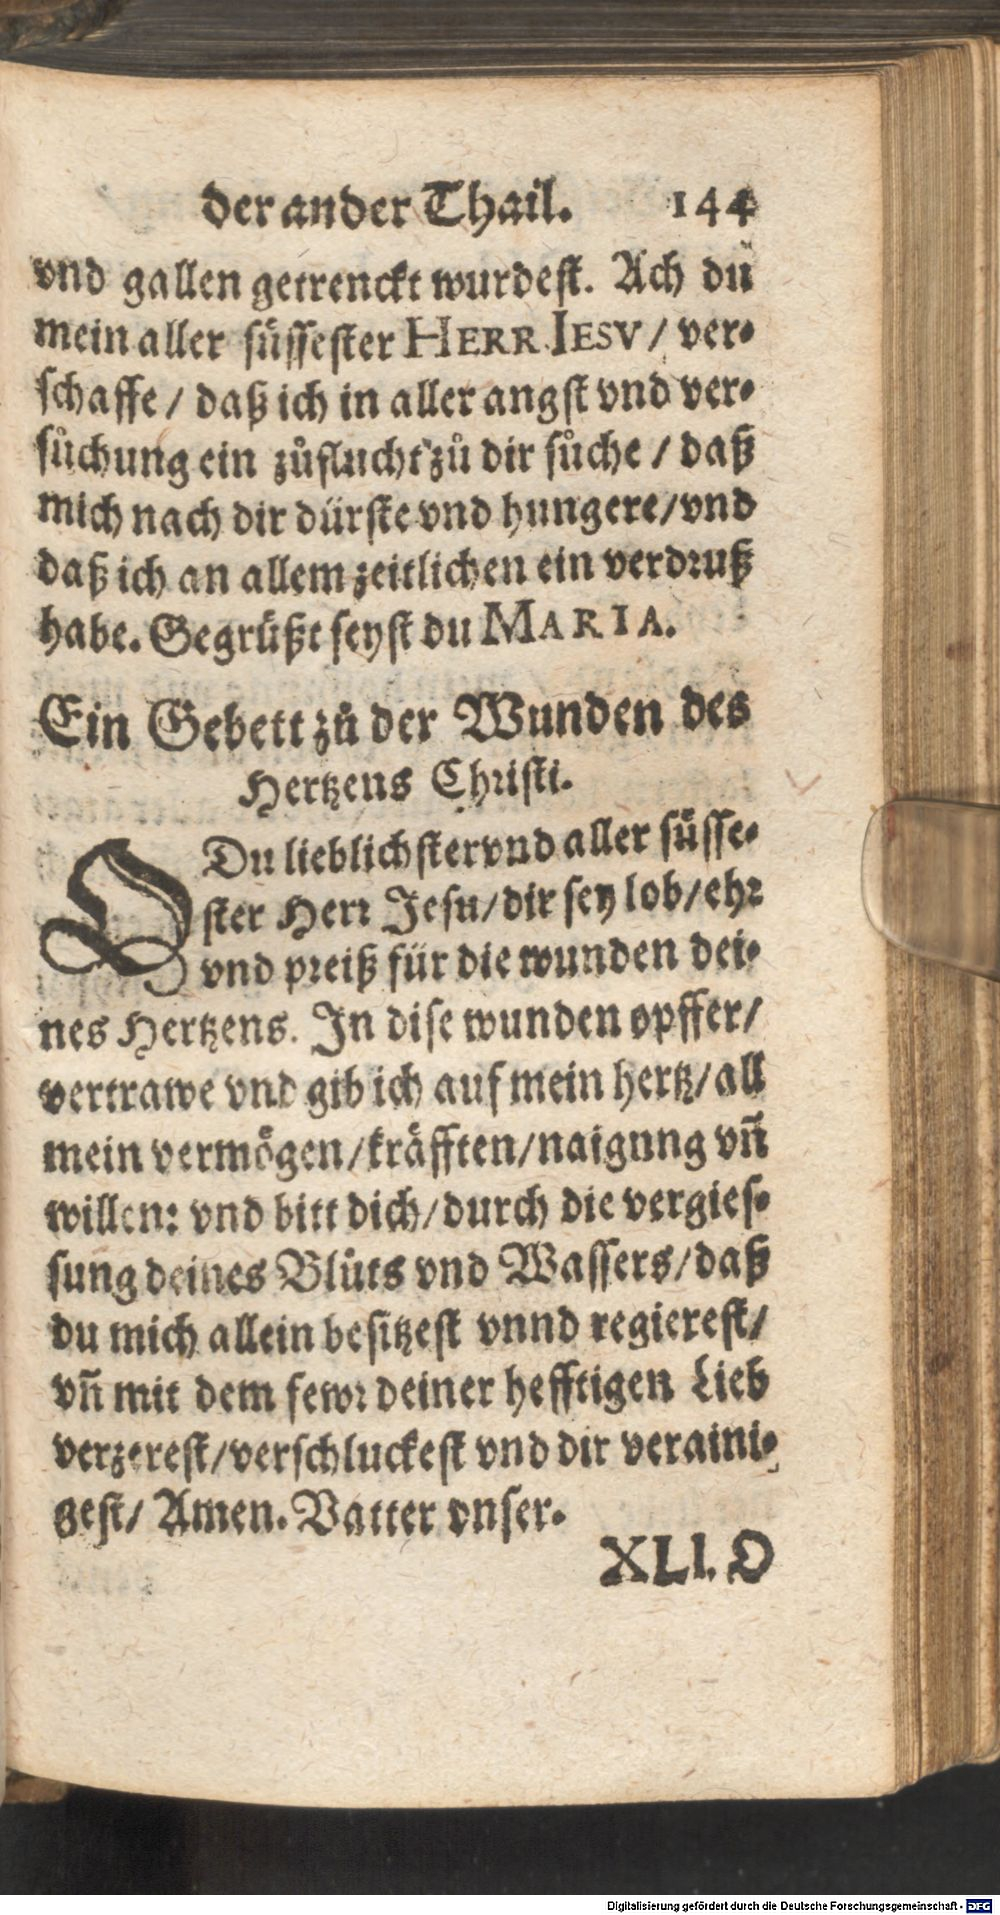 der ander Thail. 144
vnd gallen getrenckt wurdest. Ach du
mein aller süssester HERR IESV / ver-
schaffe / daß ich in aller angst vnd ver-
sůchung ein zůflucht zů dir sůche / daß
mich nach dir dürste vnd hungere / vnd
daß ich an allem zeitlichen ein verdruß
habe. Gegrüßt seyst du MARIA.
Ein Gebett zů der Wunden des
Hertzens Christi.
O Du lieblichster vnd aller süsse-
ster Herr Jesu / dir sey lob / ehr
vnd preiß für die wunden dei-
nes Hertzens. In dise wunden opffer /
vertrawe vnd gib ich auf mein hertz / all
mein vermögen / kräfften / naigung vñ
willen: vnd bitt dich / durch die vergies-
sung deines Blůts vnd Wassers / daß
du mich allein besitzest vnnd regierest /
vñ mit dem fewr deiner hefftigen Lieb
verzerest / verschluckest vnd dir veraini-
gest / Amen. Vatter vnser.
XLI. O
Digitalisierung gefördert durch die Deutsche Forschungsgemeinschaft - DFG